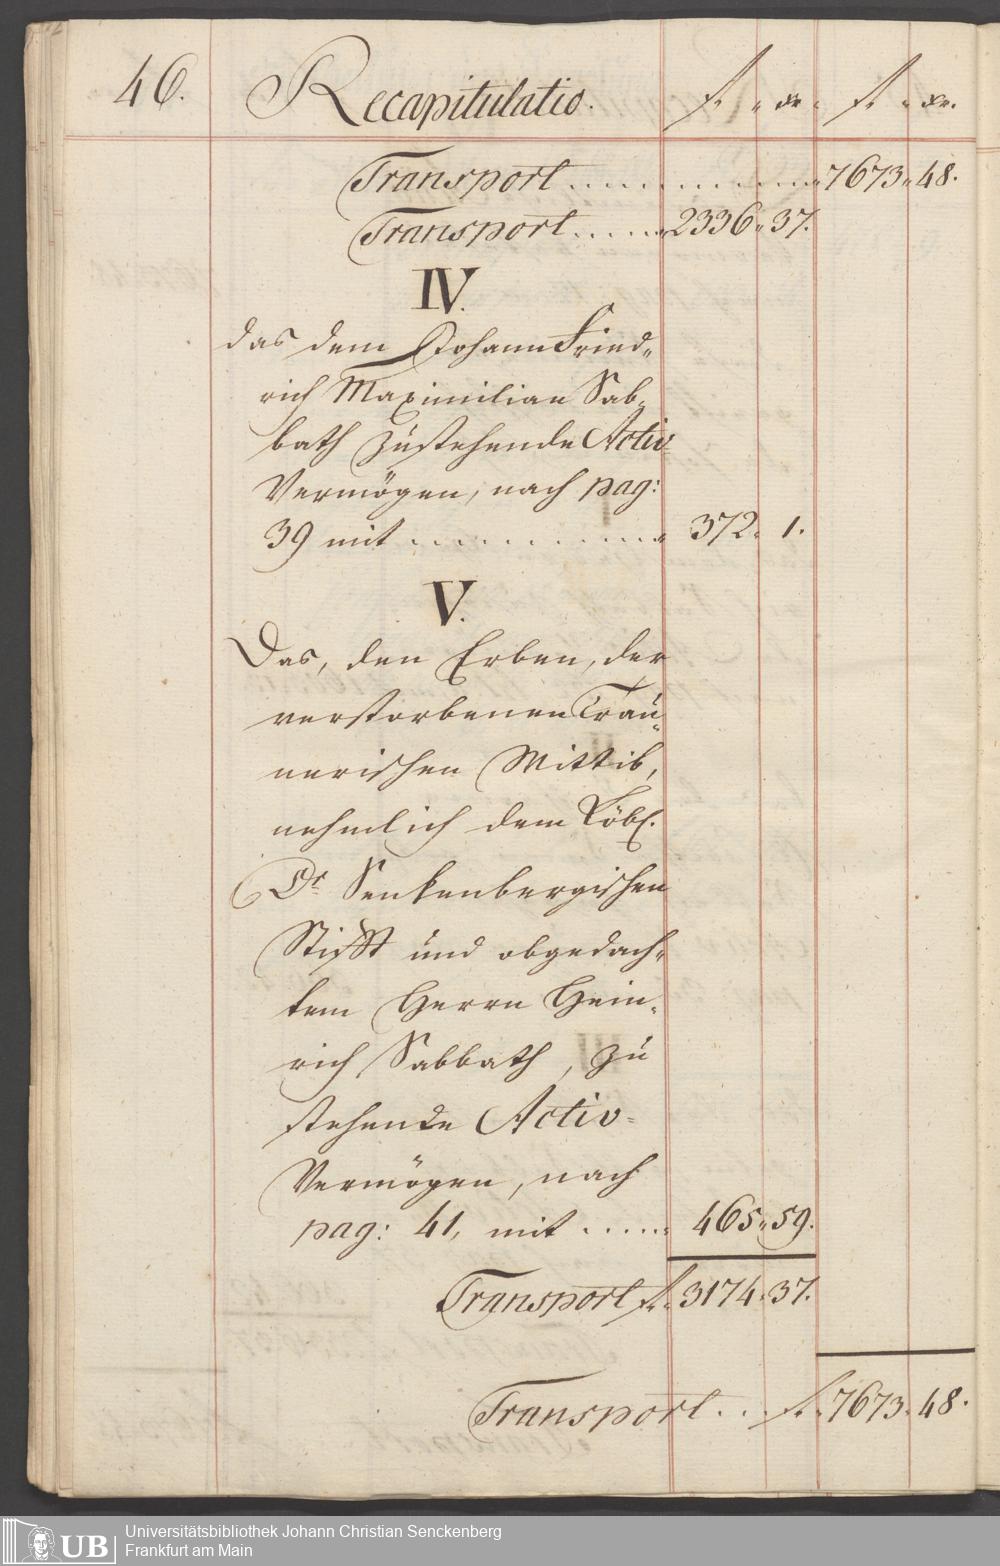 46. Recapitulatio. f. „ xr. f. „ xr.
Transport ............ 7673„ 48.
Transport ..... 2336„ 37.
IV.
das dem Johann Fried„
rich Maximilian Sab„
bath zustehende Activ
Vermögen, nach pag:
39 mit ............ 372„ 1.
V.
Das, den Erben, der
verstorbenen Trau„
nerischen Wittib,
nehmlich dem Löbl.
Dr Senkenbergischen
Stifft und obgedach„
tem Herrn Hein„
rich Sabbath, zu
stehende Activ„
Vermögen, nach
pag: 41, mit ..... 465„ 59.
Transport f. 3174„ 37.
Transport ... f. 7673„ 48.
UB Universitätsbibliothek Johann Christian Senckenberg
Frankfurt am Main